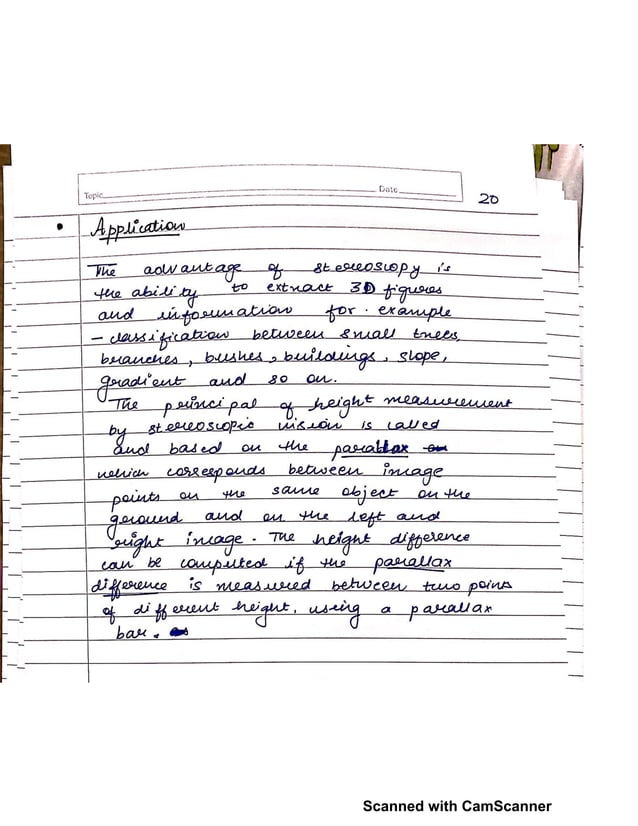 Topic
Date
20
• Application
The advantage of stereoscopy is
the ability to extract 3D figures
and information for. example
- classification between small trees,
branches, bushes, buildings, slope,
gradient and so on.
The principal of height measurement
by stereoscopic vision is called
and based on the parallax
which corresponds between image
points on the same object on the
ground and on the left and
right image. The height difference
can be computed if the parallax
difference is measured between two points
of different height, using a parallax
bar.
Scanned with CamScanner